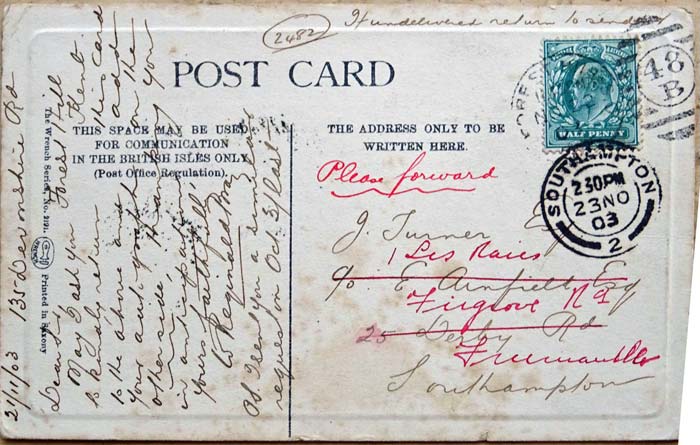 If undelivered return to sender
2482
POST CARD
THIS SPACE MAY BE USED
FOR COMMUNICATION
IN THE BRITISH ISLES ONLY
(Post Office Regulation).
THE ADDRESS ONLY TO BE
WRITTEN HERE.
The Wrench Series, No. 2121.
Printed in Saxony
21/11/03 135 Devonshire Rd
Forest Hill
Kent.
Dear Sir,
May I ask you
to kindly return this card
to the above and add
your autograph on the
other side, thanking you
in anticipation
yours faithfully
Reginald
PS. I sent you a similar
request on Oct. 31 last
HALF PENNY
FOREST HILL
48
B
SOUTHAMPTON
2 30PM
23 NO
03
2
Please forward
J. Turner Esq
1 Les Raies
c/o E Arnfield Esq
Firgrove Rd
25 Derby Rd
Freemantle
Southampton